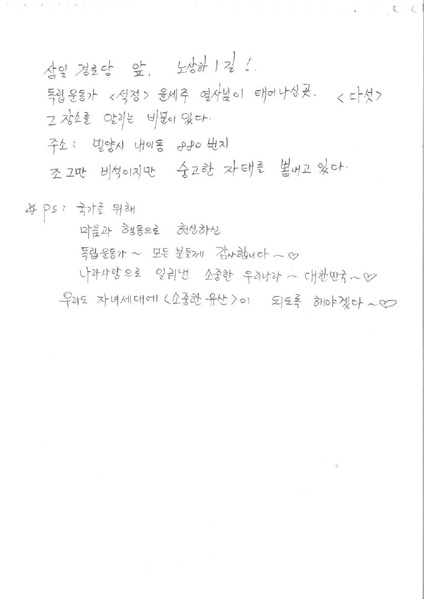 삼일 경로당 앞. 노상하 1길!
독립운동가 <석정> 윤세주 열사님이 태어나신곳. <다섯>
그 장소를 알리는 비문이 있다.
주소: 밀양시 내이동 880번지
조그만 비석이지만 숭고한 자태를 뽐내고 있다.
☆ PS: 국가를 위해
마음과 행동으로 헌신하신
독립운동가~ 모든 분들께 감사합니다~♡
나라사랑으로 일궈낸 소중한 우리나라~ 대한민국~♡
우리도 자녀세대에 <소중한 유산>이 되도록 해야겠다~♡